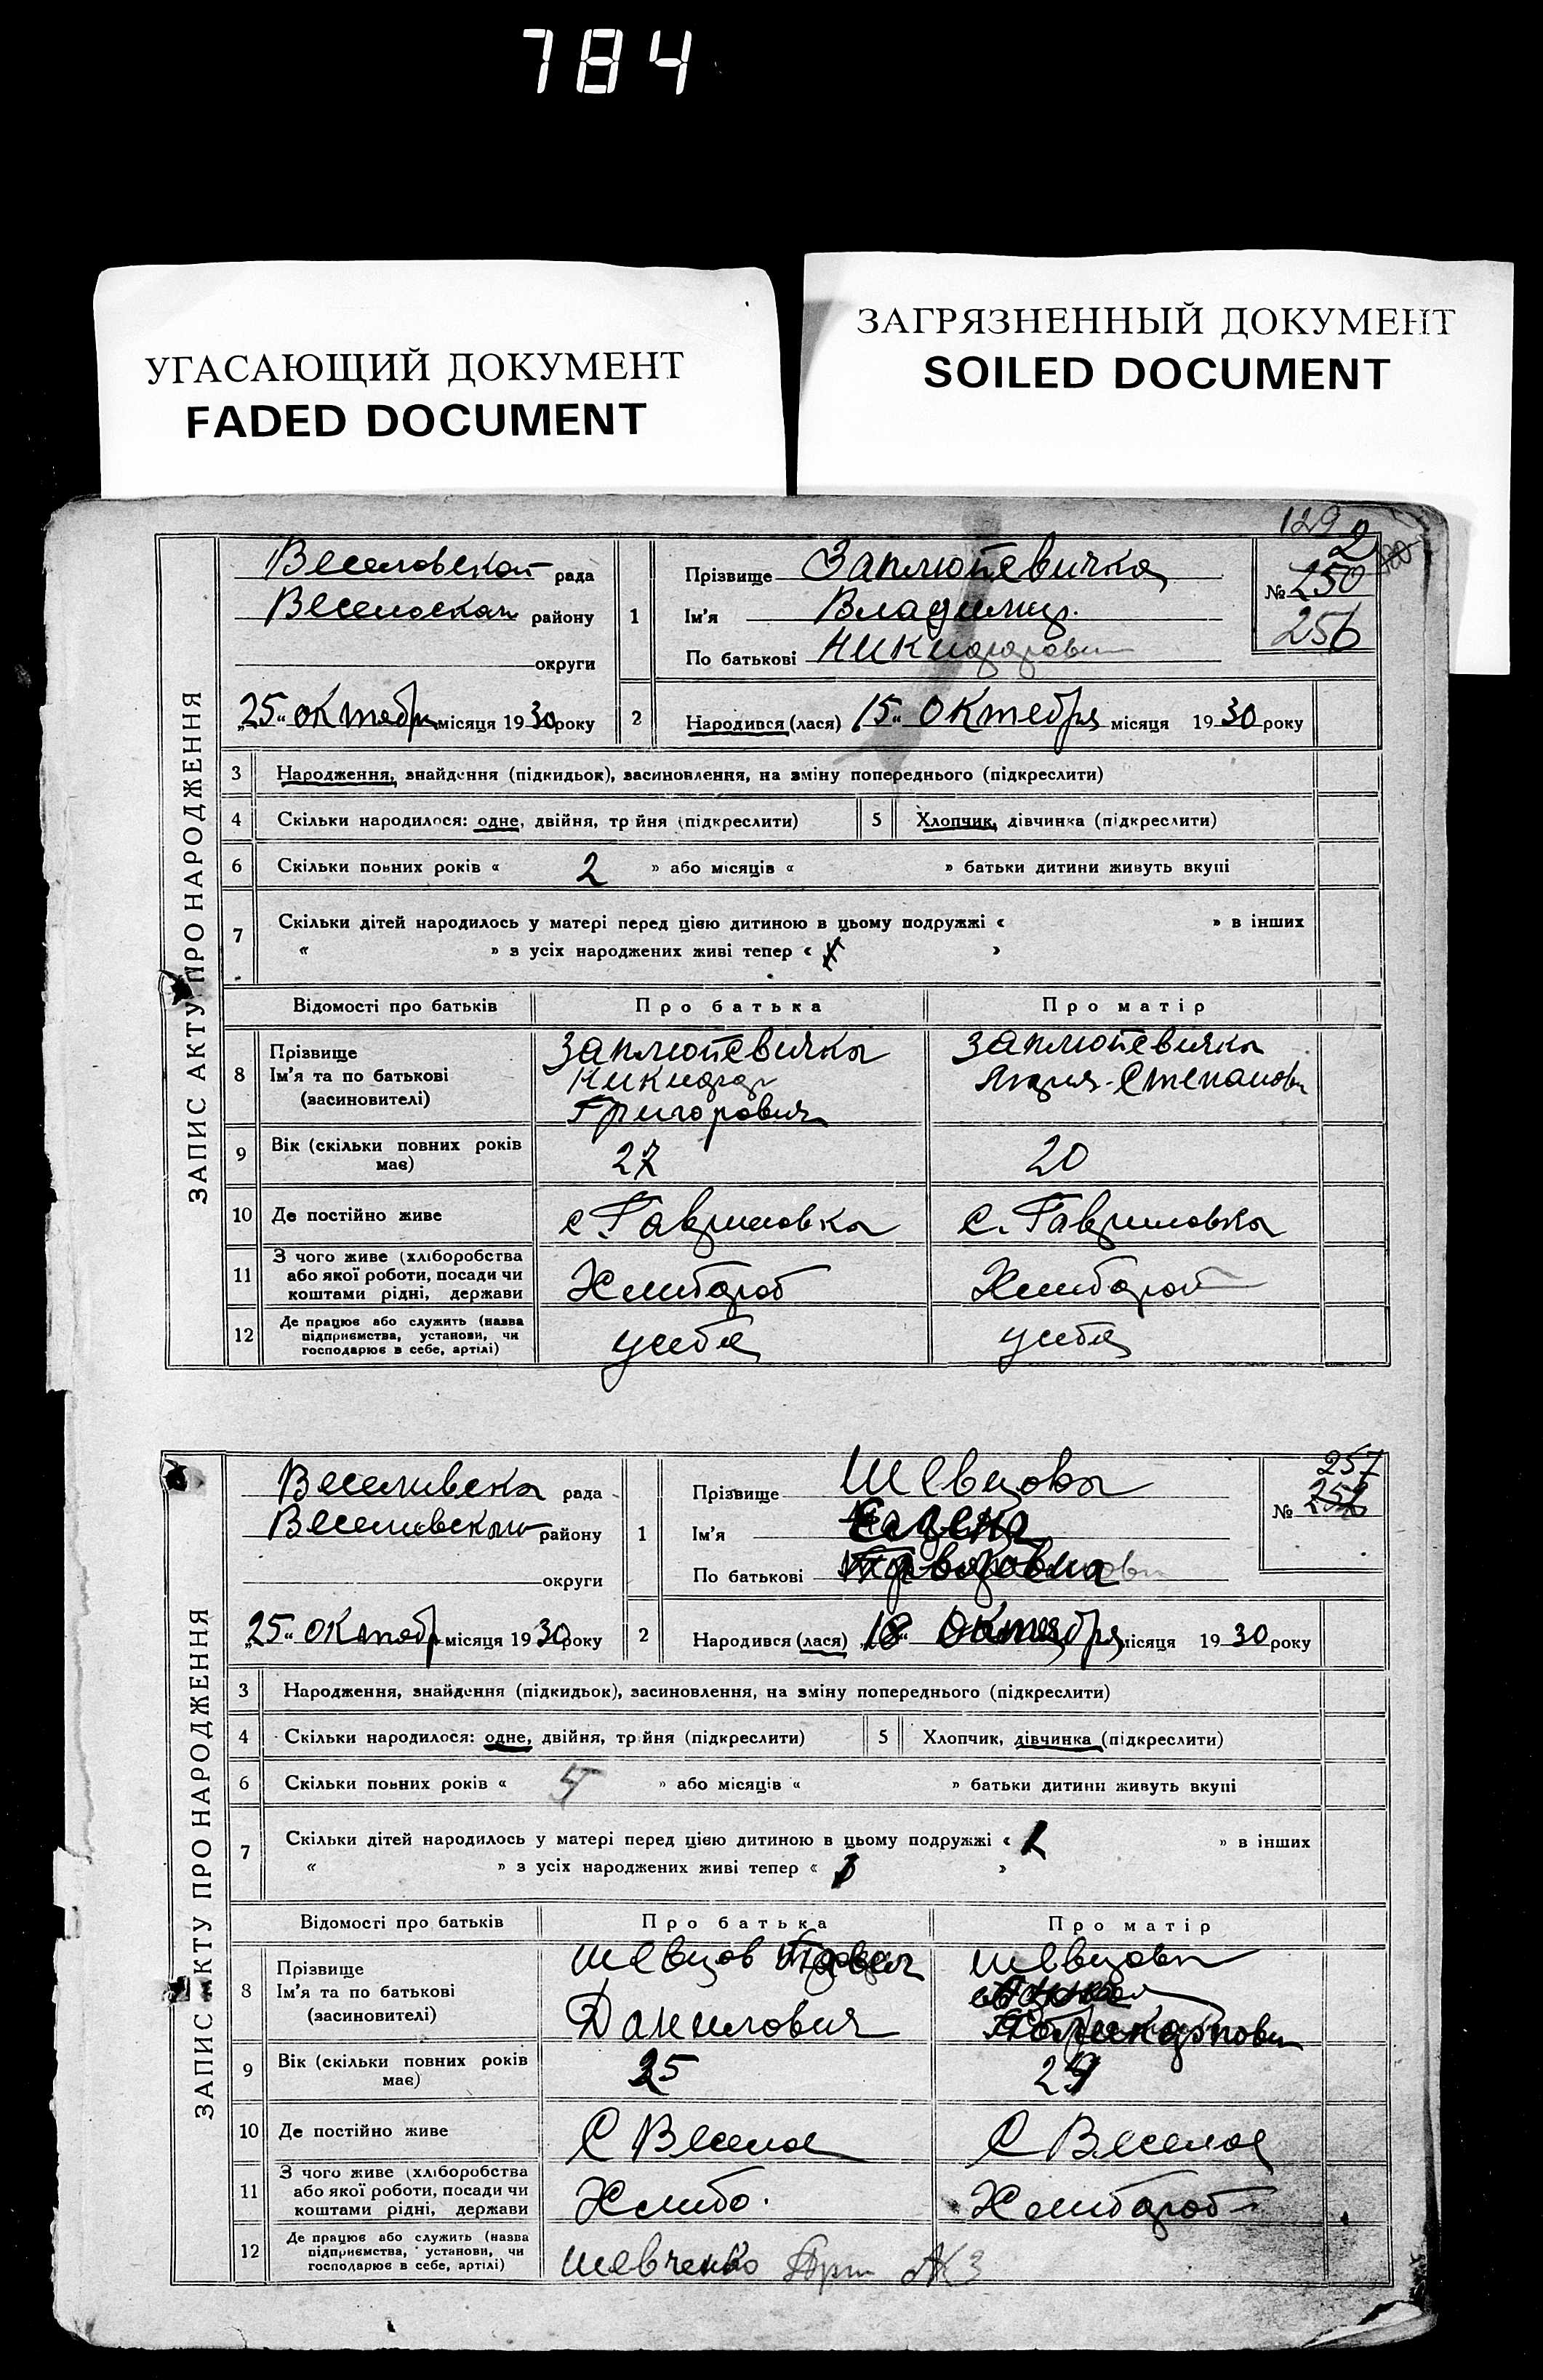 784
УГАСАЮЩИЙ ДОКУМЕНТ
FADED DOCUMENT
ЗАГРЯЗНЕННЫЙ ДОКУМЕНТ
SOILED DOCUMENT
129
2
ЗАПИС АКТУ ПРО НАРОДЖЕННЯ
Веселовской рада
района
округи
"25" октября місяця 1930 року
1
Прізвище Заплюйсвичка
Ім'я Владимир.
По батькові Никифорович
№ 250
256
2
Народився (лася) 15" Октебря місяця 1930 року
3 Народження, знайдення (підкидьок), засиновлення, на зміну попереднього (підкреслити)
4 Скільки народилося: одне, двійня, трійня (підкреслити) 5 Хлопчик, дівчинка (підкреслити)
6 Скільки повних років « 2 » або місяців « » батьки дитини живуть вкупі
7 Скільки дітей народилось у матері перед цією дитиною в цьому подружжі « » в інших
« » з усіх народжених живі тепер « »
Відомості про батьків Про батька Про матір
8 Прізвище
Ім'я та по батькові
(засиновителі)
Григорович
Степанов
9 Вік (скільки повних років має) 27 20
10 Де постійно живе с Гавриловка с. Гавриловка
11 З чого живе (хліборобства або якої роботи, посади чи коштами рідні, держави Хлибороб Хлибороб
12 Де працює або служить (назва підприємства, установи, чи господарює в себе, артілі) усебе усебе
ЗАПИС АКТУ ПРО НАРОДЖЕННЯ
Веселивска рада
Веселивского району
округи
"25" октября місяця 1930 року
1
Прізвище Шевцова
Ім'я
По батькові
257
№
2
Народився (лася) "18" Октября місяця 1930 року
3 Народження, знайдення (підкидьок), засиновлення, на зміну попереднього (підкреслити)
4 Скільки народилося: одне, двійня, трійня (підкреслити) 5 Хлопчик, дівчинка (підкреслити)
6 Скільки повних років « 5 » або місяців « » батьки дитини живуть вкупі
7 Скільки дітей народилось у матері перед цією дитиною в цьому подружжі « » в інших
« » з усіх народжених живі тепер « »
Відомості про батьків Про батька Про матір
8 Прізвище
Ім'я та по батькові
(засиновителі)
Шевцов
Данилович
Шевцова
9 Вік (скільки повних років має) 25
10 Де постійно живе С Веселое С Веселое
11 З чого живе (хліборобства або якої роботи, посади чи коштами рідні, держави Хлибо. Хлибороб
12 Де працює або служить (назва підприємства, установи, чи господарює в себе, артілі) Шевченко